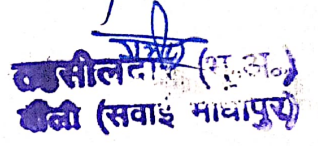 तहसीलदार (भू.अ.)
बौंली (सवाई माधोपुर)